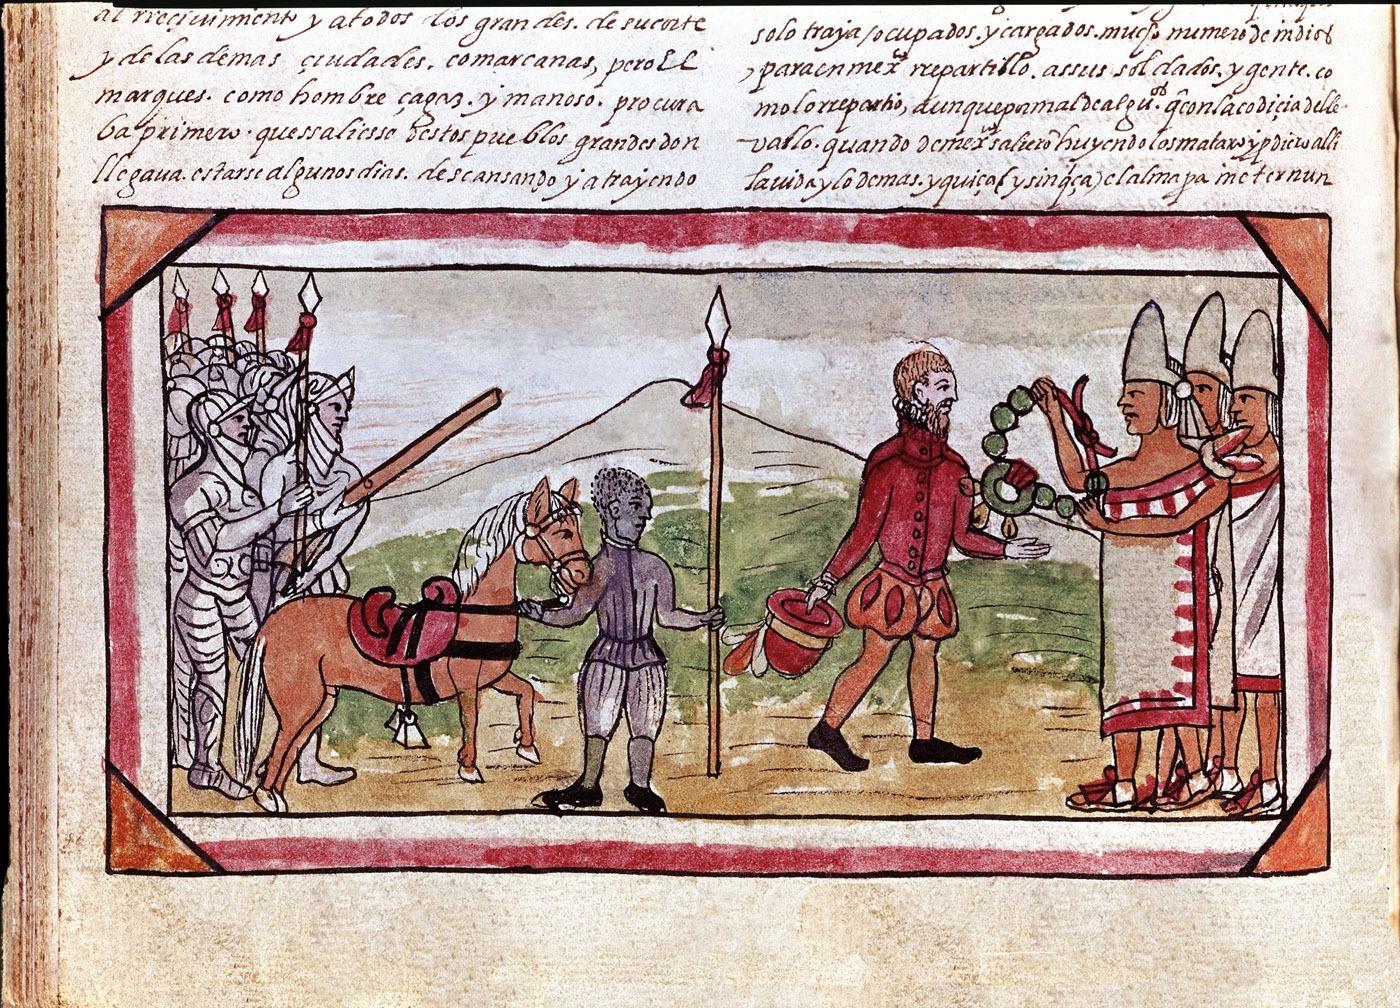 al rreçiuimiento y a todos los grandes. de su corte
y de las demas çiudades. comarcanas, pero El
marques. como hombre çagaz. y manoso. procura
ba primero. que ssaliesse destos pueblos grandes don
llegaua. estarse algunos dias. descansando y atrayendo
solo traya /ocupados. y cargados. mucho numero de indios
, para en mexco rrepartillo. a ssus soldados. y gente. co
mo lo rrepartio, aunque para mal de algu^os. q̃ con la codiçia de lle
vallo. quando de mexco salierō huyendo los mataro y pdierō alli
la vida y lo demas. y quiça (y sin q̃ça) el alma pa meter nun